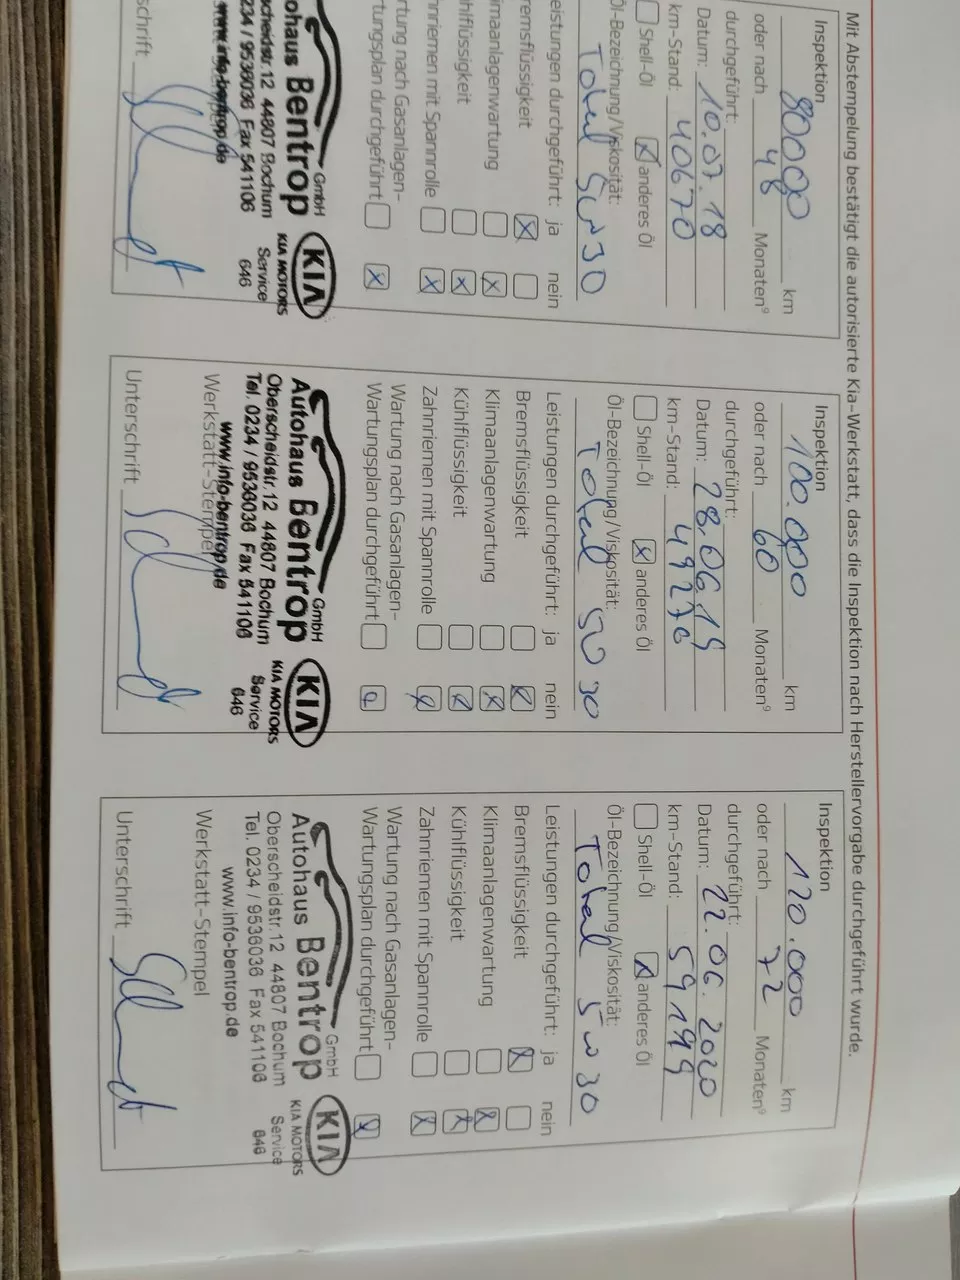 Mit Abstempelung bestätigt die autorisierte Kia-Werkstatt, dass die Inspektion nach Herstellervorgabe durchgeführt wurde.
Inspektion 80000 km
oder nach 48 Monaten⁹
durchgeführt:
Datum: 10.07.18
km-Stand: 40670
Shell-Öl x anderes Öl
Öl-Bezeichnung/Viskosität:
Total 5w30
eistungen durchgeführt: ja nein
remsflüssigkeit x
imaanlagenwartung x
ühlflüssigkeit x
hnriemen mit Spannrolle x
rtung nach Gasanlagen-
rtungsplan durchgeführt x
ohaus Bentrop GmbH
scheidstr. 12 44807 Bochum
234 / 9536036 Fax 541106
www.info-bentrop.de
KIA
KIA MOTORS
Service
646
schrift
Inspektion 100.000 km
oder nach 60 Monaten⁹
durchgeführt:
Datum: 28.06.19
km-Stand: 49276
Shell-Öl x anderes Öl
Öl-Bezeichnung/Viskosität:
Total 5W30
Leistungen durchgeführt: ja nein
Bremsflüssigkeit x
Klimaanlagenwartung x
Kühlflüssigkeit x
Zahnriemen mit Spannrolle x
Wartung nach Gasanlagen-
Wartungsplan durchgeführt x
Autohaus Bentrop GmbH
Oberscheidstr. 12 44807 Bochum
Tel. 0234 / 9536036 Fax 541106
www.info-bentrop.de
KIA
KIA MOTORS
Service
646
Werkstatt-Stempel
Unterschrift
Inspektion 120.000 km
oder nach 72 Monaten⁹
durchgeführt:
Datum: 22.06.2020
km-Stand: 59199
Shell-Öl x anderes Öl
Öl-Bezeichnung/Viskosität:
Total 5w30
Leistungen durchgeführt: ja nein
Bremsflüssigkeit x
Klimaanlagenwartung x
Kühlflüssigkeit x
Zahnriemen mit Spannrolle x
Wartung nach Gasanlagen-
Wartungsplan durchgeführt x
Autohaus Bentrop GmbH
Oberscheidstr. 12 44807 Bochum
Tel. 0234 / 9536036 Fax 541106
www.info-bentrop.de
KIA
KIA MOTORS
Service
646
Werkstatt-Stempel
Unterschrift